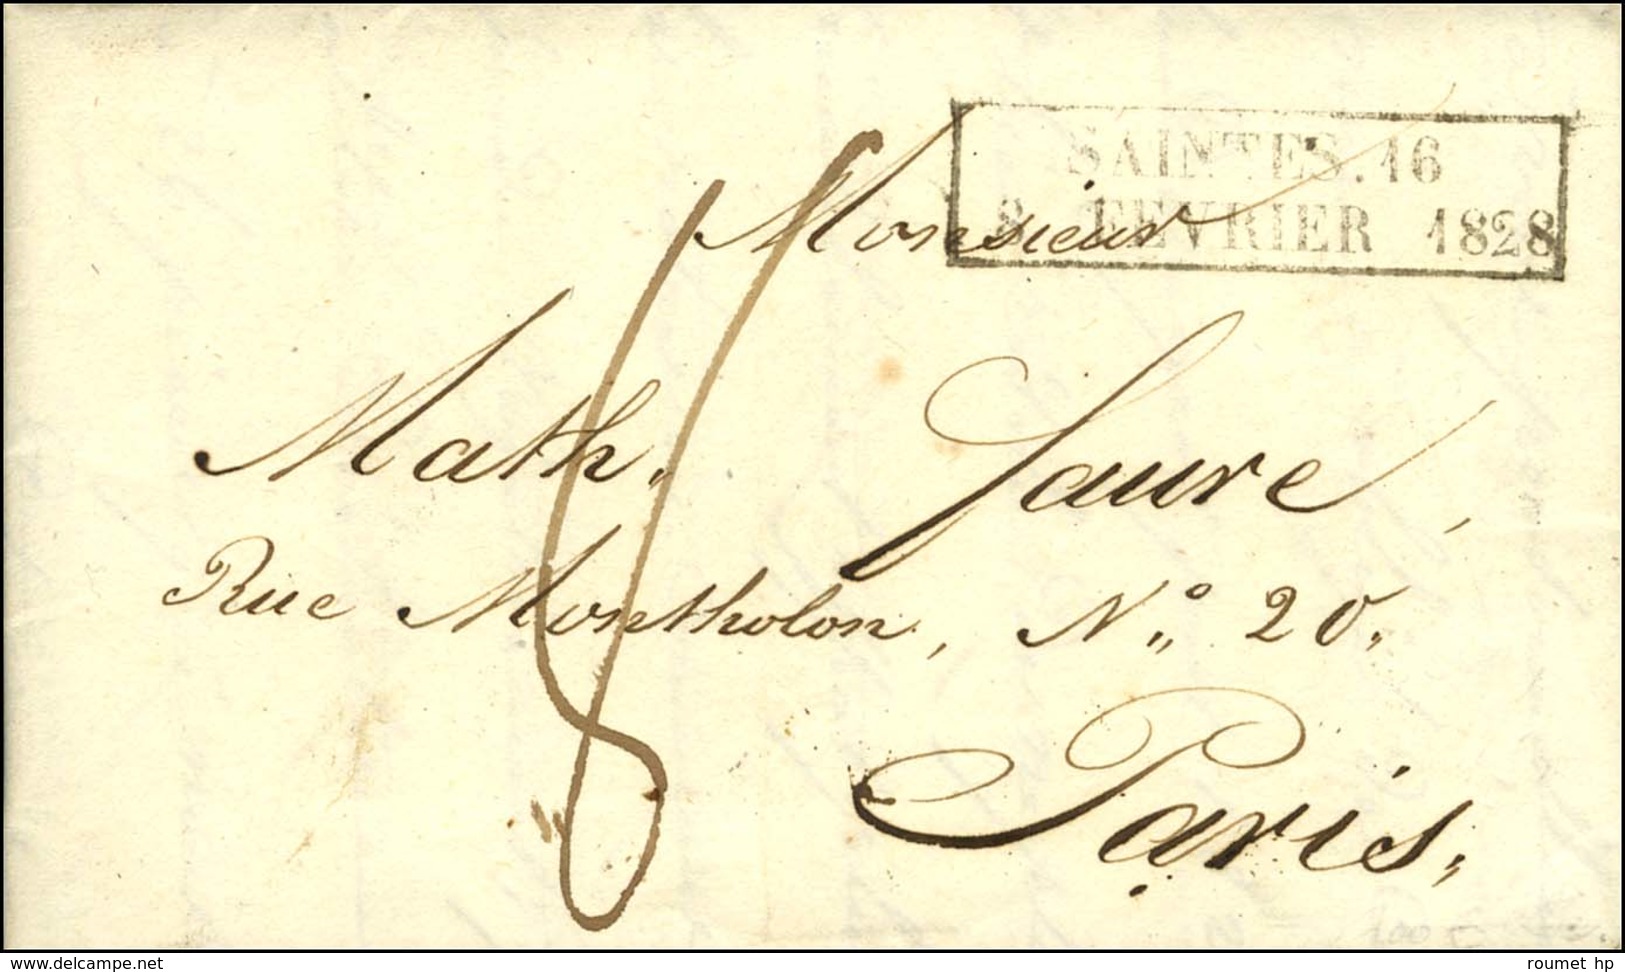 SAINTES.16
8 FEVRIER 1828
Monsieur
Math. Faure,
Rue Montholon, N.º 20.
Paris.
8
www.delcampe.net
roumet hp